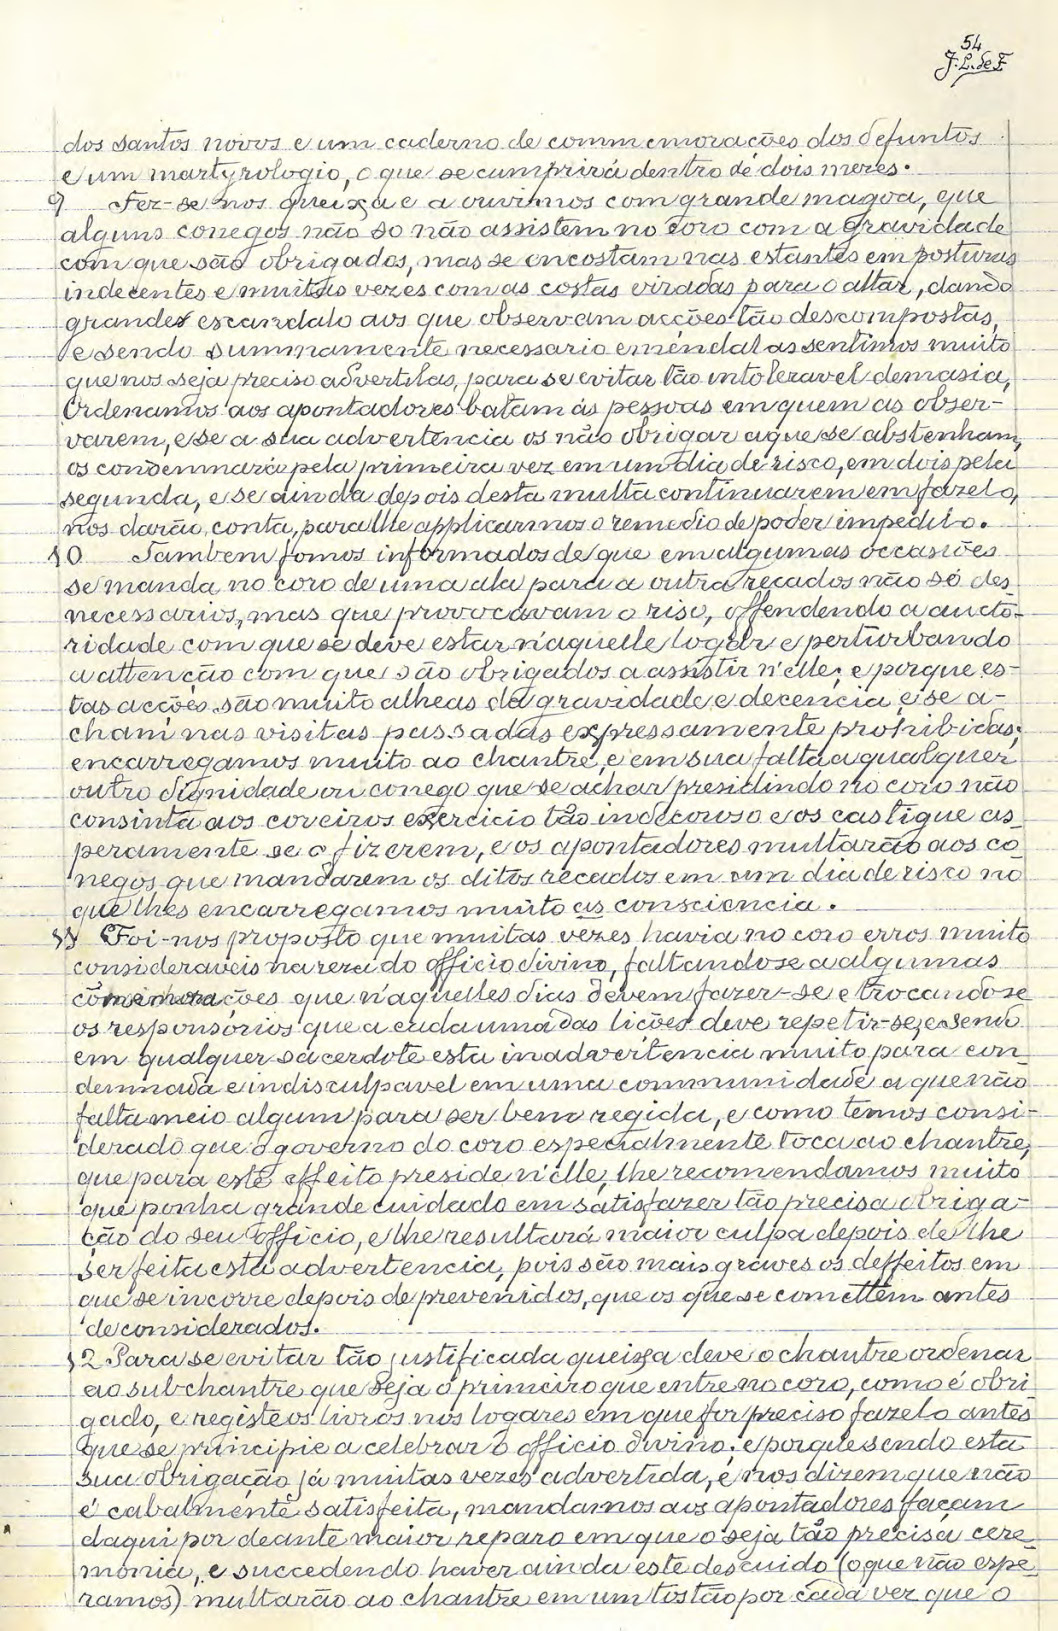 54
J. L. de F
dos santos novos e um caderno de commemorações dos defuntos
e um martyrologio, o que se cumprirá dentro de dois meses.
9 Fez-se nos queixa e a ouvimos com grande magoa, que
alguns conegos não só não assistem no coro com a gravidade
com que são obrigados, mas se encostam nas estantes em posturas
indecentes e muitas vezes com as costas viradas para o altar, dando
grande escandalo aos que observam acções tão descompostas,
e sendo summamente necessario emendal as sentimos muito
que nos seja preciso advertilas, para se evitar tão intoleravel demasia,
Ordenamos aos apontadores batam ás pessoas em quem as obser-
varem, e se a sua advertencia os não obrigar a que se abstenham,
os condemnará pela primeira vez em um dia de risco, em dois pela
segunda, e se ainda depois desta multa continuarem em fazelo,
nos darão conta, para lhe applicarmos o remedio de poder impedilo.
10 Tambem fomos informados de que em algumas occasiões
se manda no coro de uma ala para a outra recados não só des
necessarios, mas que provocavam o riso, offendendo a aucto-
ridade com que se deve estar n'aquelle logar e perturbando
a attenção com que são obrigados a assistir n'elle; e porque es-
tas acções são muito alheas da gravidade e decencia, e se a-
cham nas visitas passadas expressamente prohibidas;
encarregamos muito ao chantre, e em sua falta a qualquer
outro dignidade ou conego que se achar presidindo no coro não
consinta aos coreiros exercicio tão indecoroso e os castigue as
peramente se o fizerem, e os apontadores multarão aos co
negos que mandarem os ditos recados em um dia de risco no
que lhes encarregamos muito as consciencia.
11 Foi-nos proposto que muitas vezes havia no coro erros muito
consideraveis na reza do officio divino, faltando se a algumas
cōmemorações que n'aquelles dias devem fazer-se e trocando se
os responsórios que a cada uma das lições deve repetir-se, e sendo
em qualquer sacerdote esta inadvertencia muito para con
demnada e indisculpavel em uma communidade a que não
falta meio algum para ser bem regida, e como temos consi-
derado que o governo do coro especialmente toca ao chantre,
que para este effeito preside n'elle, lhe recomendamos muito
que ponha grande cuidado em satisfazer tão precisa obriga-
ção do seu officio, e lhe resultará maior culpa depois de lhe
ser feita esta advertencia, pois são mais graves os deffeitos em
que se incorre depois de prevenidos, que os que se comettem antes
de considerados.
12 Para se evitar tão justificada queixa deve o chantre ordenar
ao subchantre que seja o primeiro que entre no coro, como é obri
gado, e registe os livros nos logares em que for preciso fazelo antes
que se principie a celebrar o officio divino; e porque sendo esta
sua obrigação já muitas vezes advertida, e nos dizem que não
é cabalmente satisfeita, mandamos aos apontadores façam
daqui por deante maior reparo em que o seja tão precisa cere
monia, e succedendo haver ainda este descuido (o que não espe
ramos) multarão ao chantre em um tostão por cada vez que o